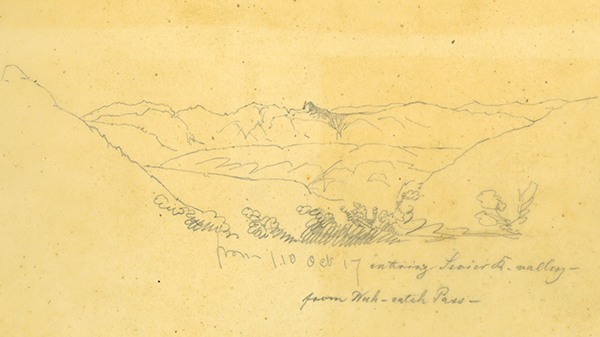 from 110 Oct 17 entering Sevier R. valley-
from Wah-satch Pass-